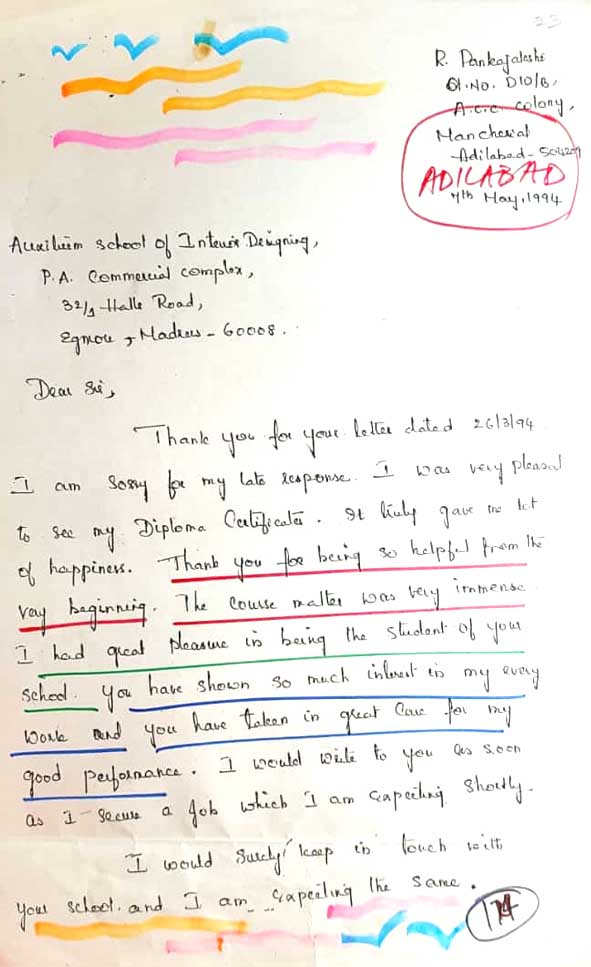 23
R. Pankajaleshi
Ql. No. D10/B,
A.C.C. Colony,
Mancherial
Adilabad - 504209
ADILABAD
7th May, 1994
Auxilium School of Interior Designing,
P.A. Commercial complex,
32/1 Halls Road,
Egmore, Madras - 60008.
Dear Sir,
Thank you for your letter dated 26/3/94
I am sorry for my late response. I was very pleased
to see my Diploma Certificates. It truly gave me lot
of happiness. Thank you for being so helpful from the
very beginning. The course matter was very immense.
I had great pleasure in being the student of your
school. You have shown so much interest in my every
work and you have taken in great care for my
good performance. I would write to you as soon
as I secure a job which I am expecting shortly.
I would surely keep in touch with
your school and I am expecting the same.